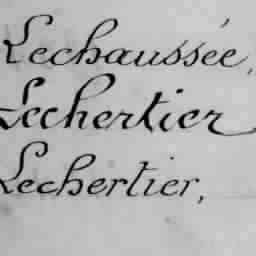 Lechaussée,
Lechertier
Lechertier,